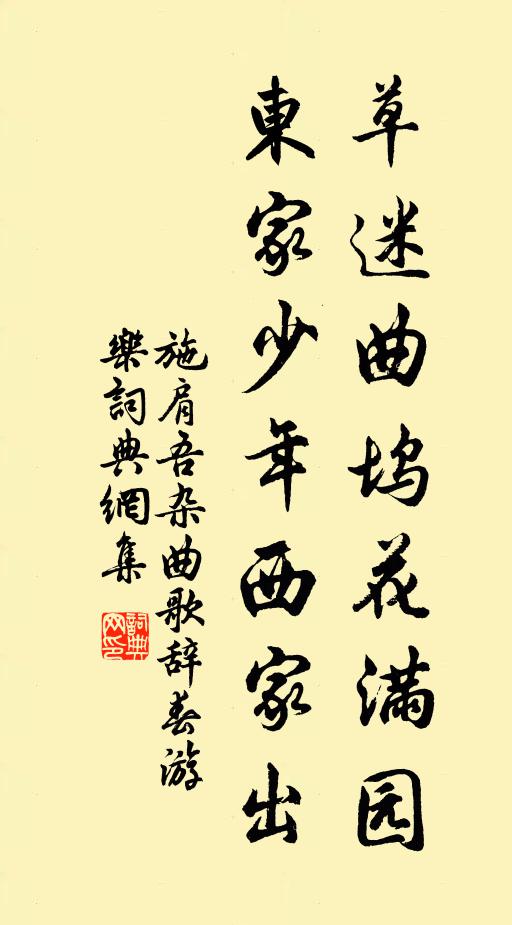 草迷曲坞花满园
東家少年西家出
施肩吾杂曲歌辞春游
樂詞典網集
詞典
网印